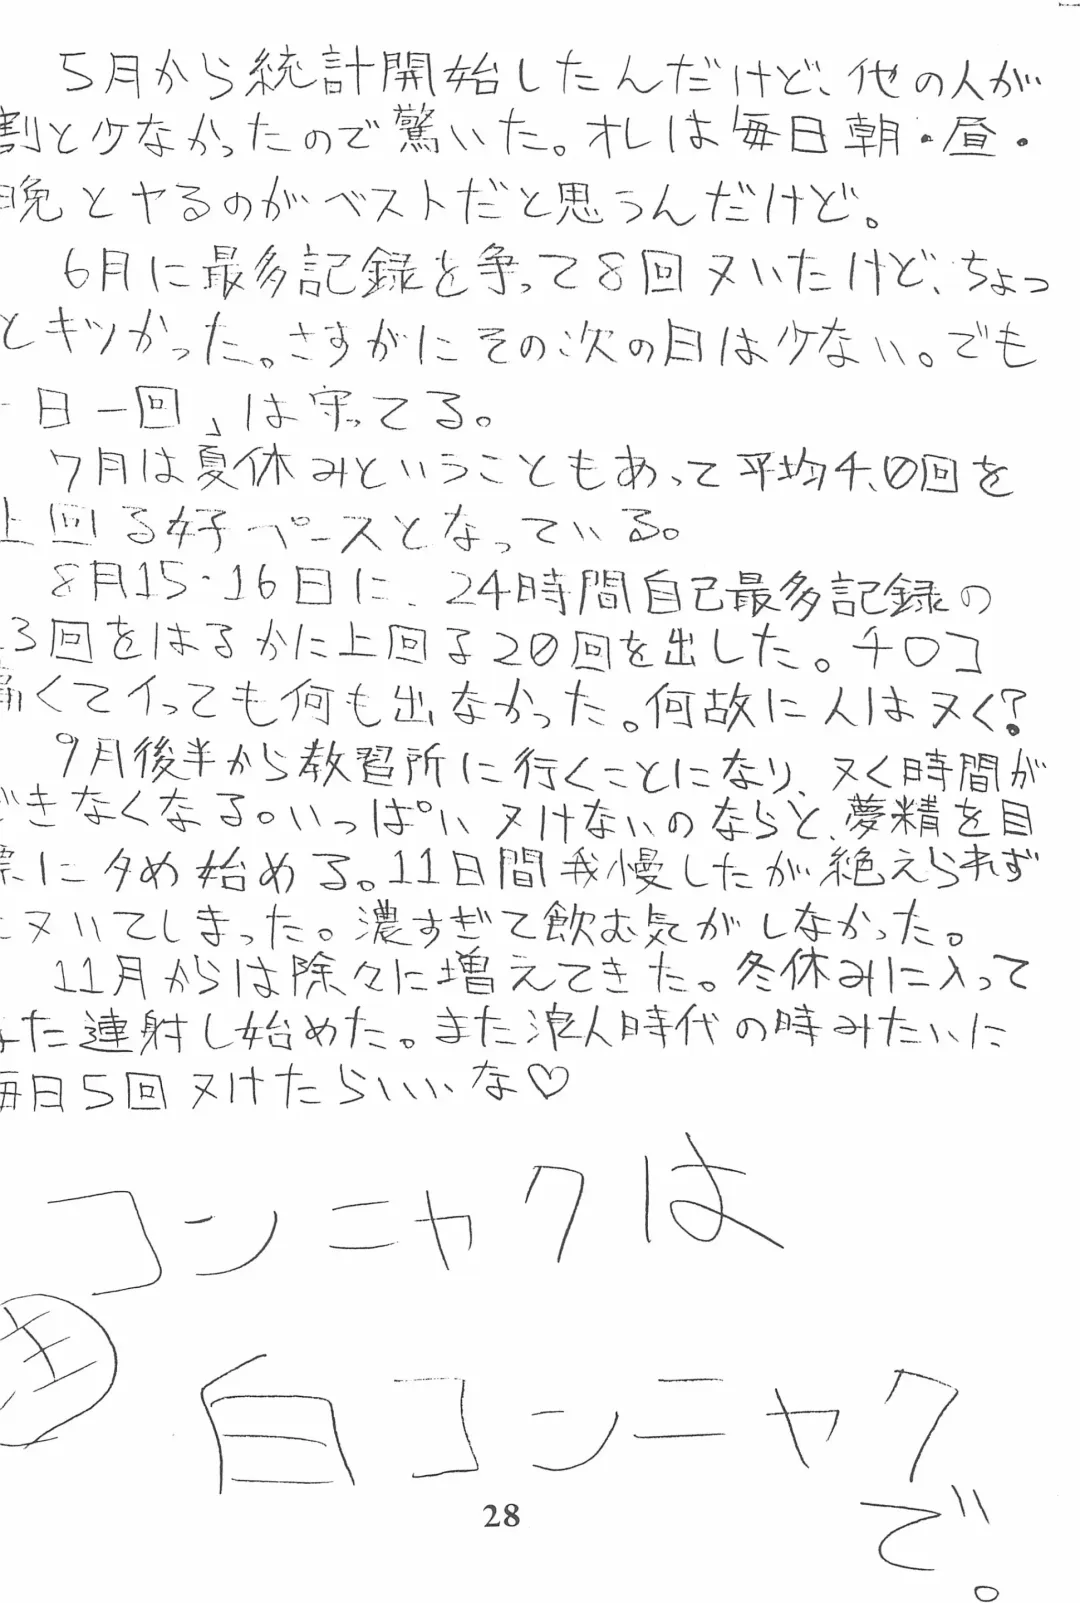 5月から統計開始したんだけど、他の人が
割と少なかったので驚いた。オレは毎日朝・昼・
晩とヤるのがベストだと思うんだけど。
6月に最多記録を争って8回ヌいたけど、ちょっ
とキツかった。さすがにその次の日は少ない。でも
一日一回」は守ってる。
7月は夏休みということもあって平均4.0回を
上回る好ペースとなっている。
8月15・16日に、24時間自己最多記録の
3回をはるかに上回る20回を出した。チロコ
痛くてイっても何も出なかった。何故に人はヌく?
9月後半から教習所に行くことになり、ヌく時間が
できなくなる。いっぱいヌけないのならと、夢精を目
標にタめ始める。11日間我慢したが絶えられず
にヌいてしまった。濃すぎて飲む気がしなかった。
11月からは除々に増えてきた。冬休みに入って
また連射し始めた。また浪人時代の時みたいに
毎日5回ヌけたらいいな♡
コンニャクは
注
白コンニャク
で。
28